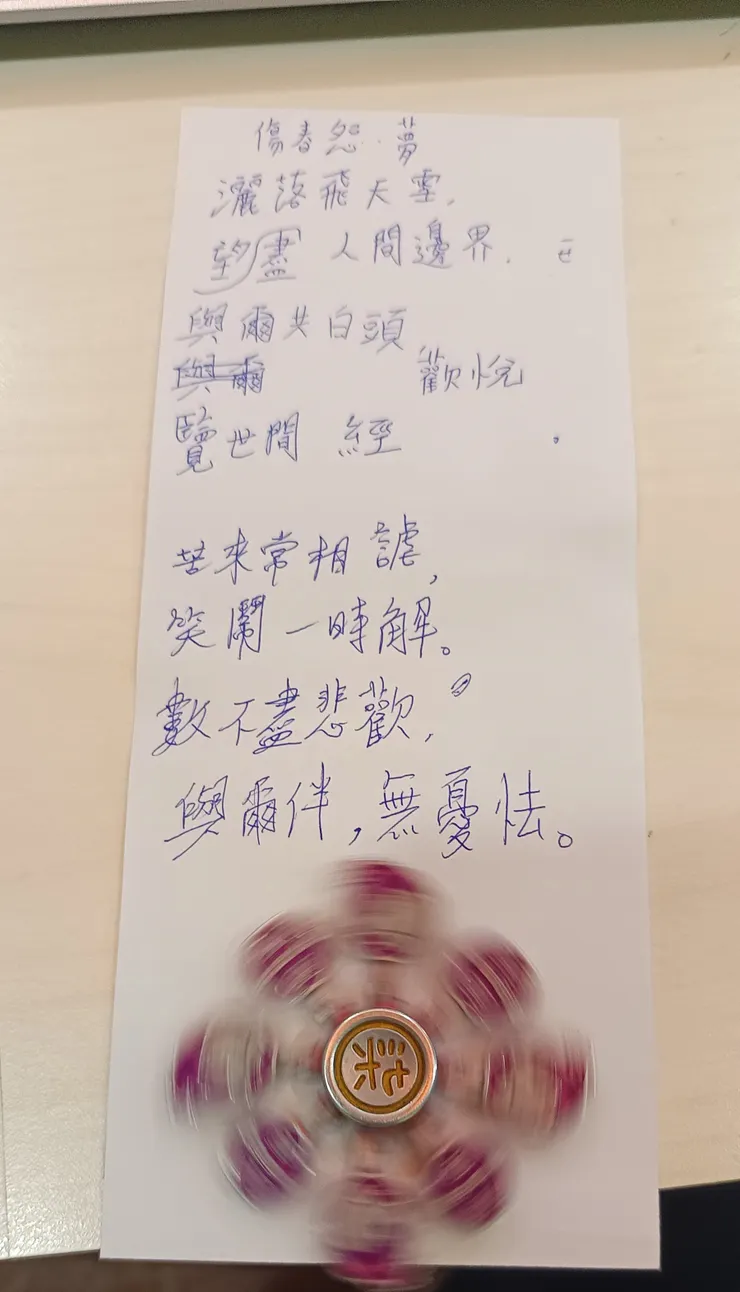 傷春怨·夢
灑落飛天雪,
望盡人間邊界.
與爾共白頭
與爾 歡悅
覽世間 經 .
苦來常相謔,
笑鬧一時解。
數不盡悲歡,
與爾伴,無憂怯。